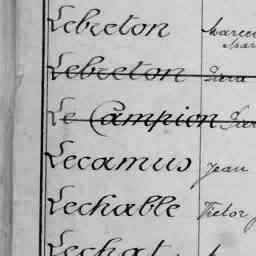 Lebreton
Lebreton
Le Campion
Lecamus Jean
Lechable Victor
Lechat